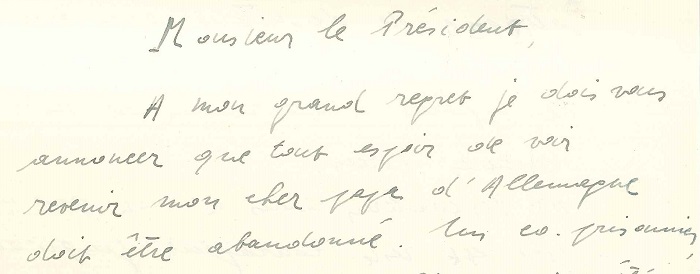 Monsieur le Président,
A mon grand regret je dois vous
annoncer que tout espoir de voir
revenir mon cher papa d'Allemagne
doit être abandonné. Un co-prisonnier,